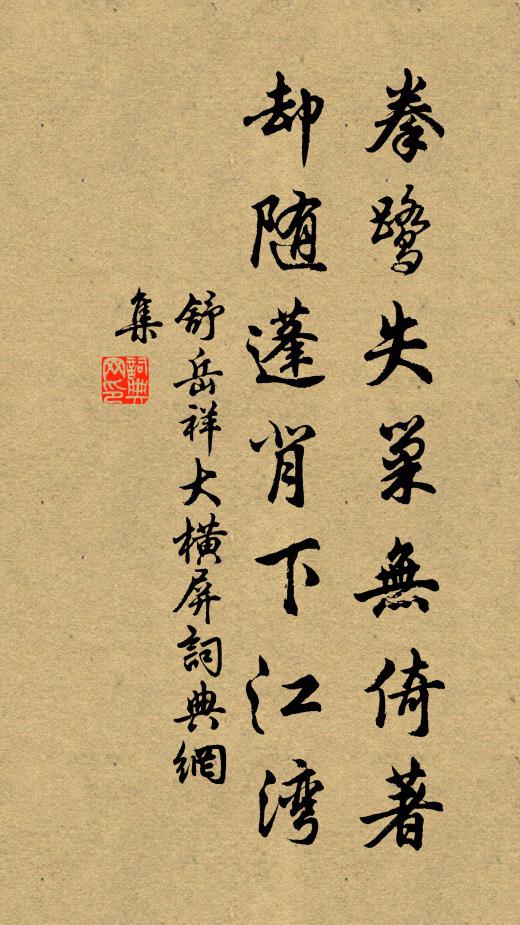 拳鷺失巢無倚著
却随蓬背下江湾
舒岳祥大横屏詞典網
集
詞典网印